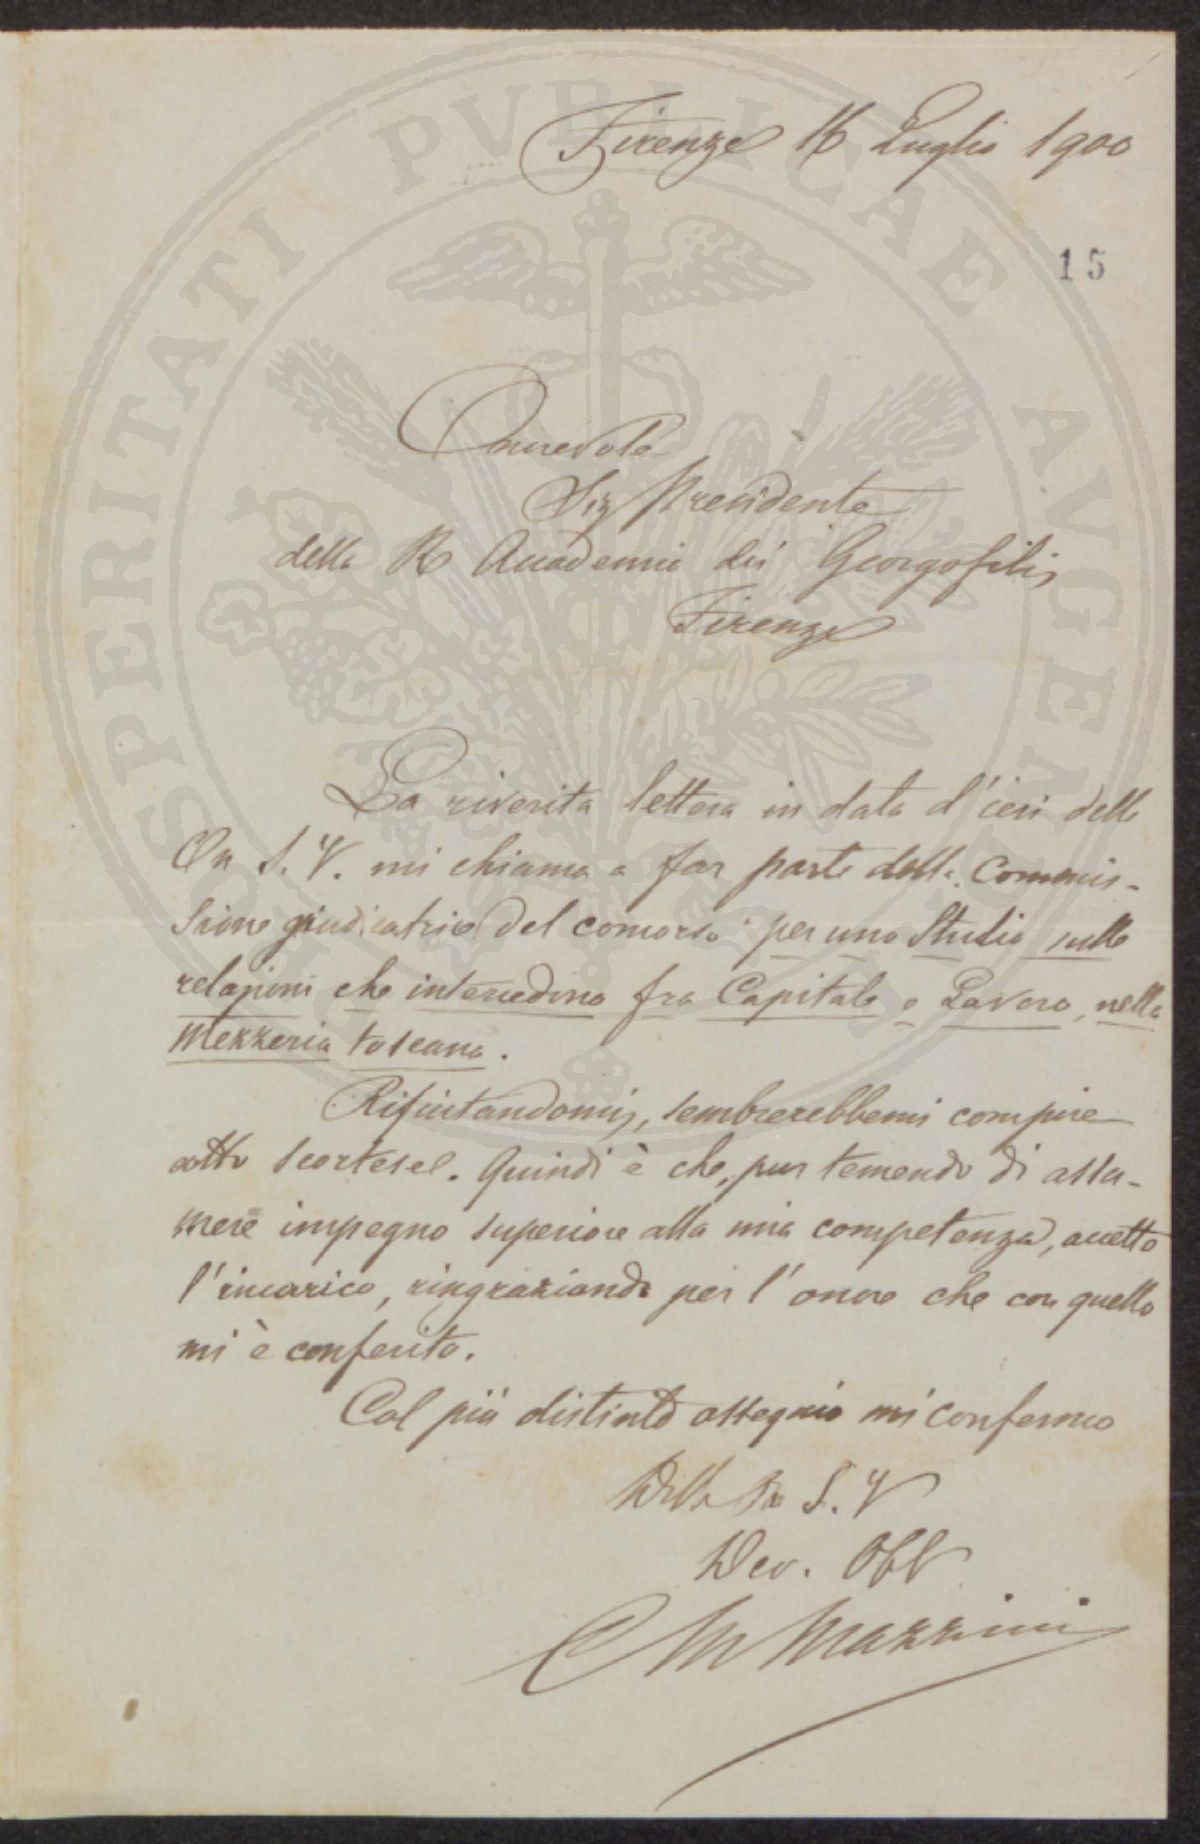 Firenze 16 Luglio 1900
15
Onorevole
Sig Presidente
della R Accademia dei Georgofili,
Firenze
La riverita lettera in data d'ieri della
On S. V. mi chiama a far parte della Commis-
sione giudicatrice del concorso "per uno Studio sulle
relazioni che intercedono fra Capitale e Lavoro, nella
Mezzeria toscana.
Rifiutandomi, sembrerebbemi compire
atto scortese. Quindi è che, pur temendo di assu-
mere impegno superiore alla mia competenza, accetto
l'incarico, ringraziando per l'onore che con quello
mi è conferito.
Col più distinto ossequio mi confermo
Della S. V
Dev. Obb
C M Mazzini
PROSPERITATI PVBLICAE AVGENDAE